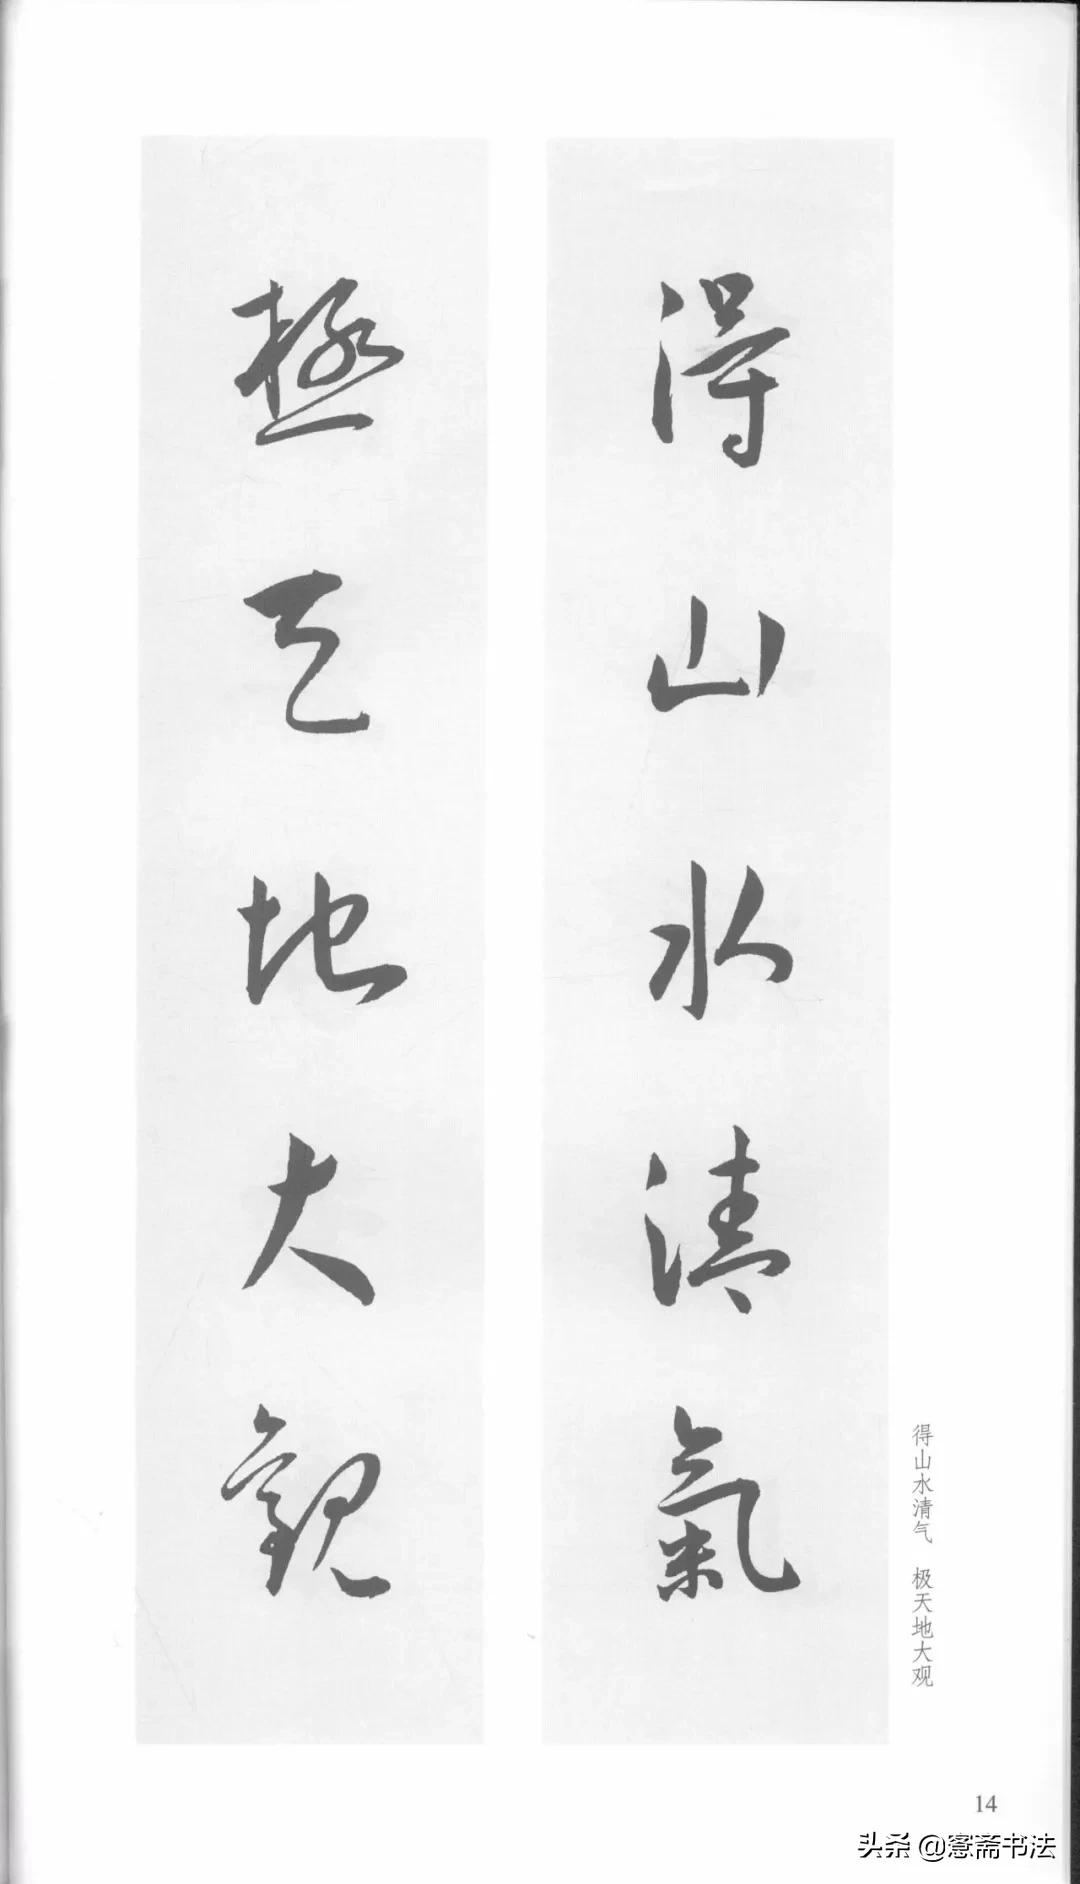 得山水清氣
極天地大觀
得山水清气 极天地大观
14
头条 @窓斋书法